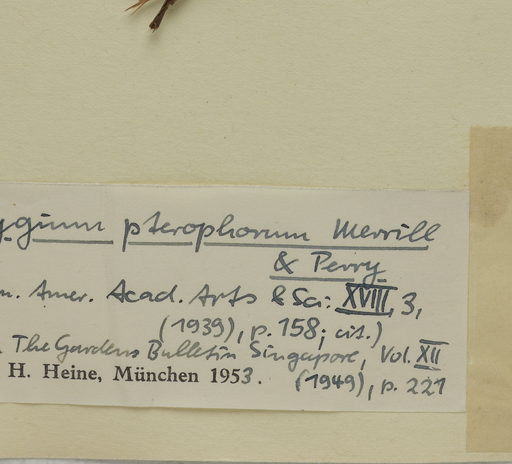 ygium pterophorum Merrill
& Perry
m. Amer. Acad. Arts & Sci: XVIII, 3,
(1939), p. 158; cit.)
The Gardens Bulletin Singapore, Vol. XII
H. Heine, München 1953. (1949), p. 221